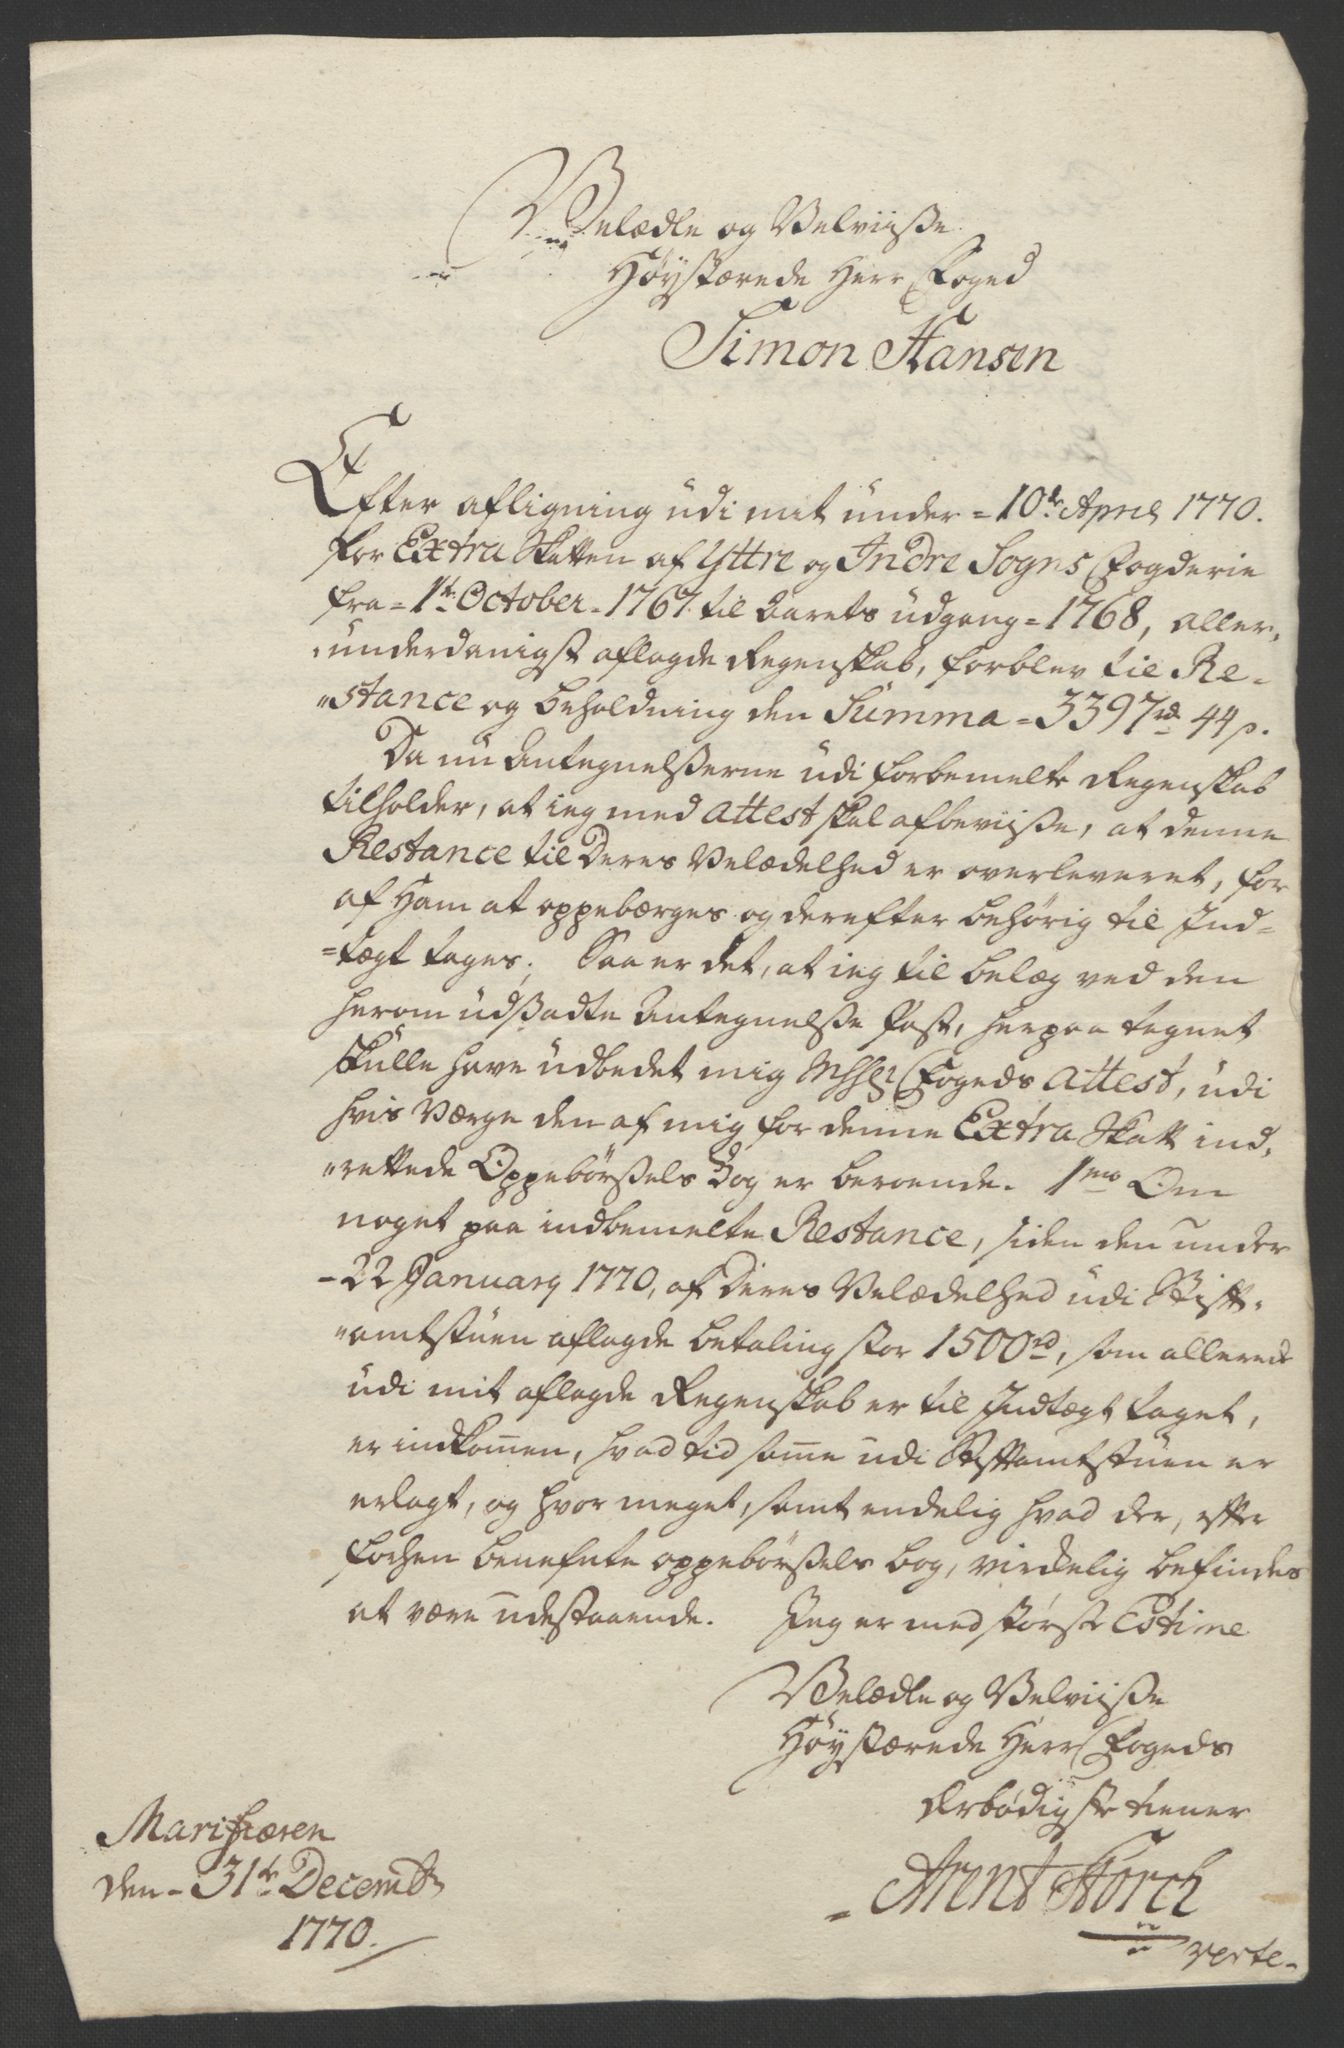 Velædle og Velviisse
Høystærede Herr Foged
Simon Hansen
Efter afligning udi mit under = 10de April 1770.
for Extra Skatten af Yttre og Indre Sogns Fogderie
fra = 1te October = 1767 til Aarets udgang = 1768, aller,
underdanigst aflagde Regenskab, forblev til Re-
"stance og beholdning den Summa = 3397rd 44s.
Da nu Antegnelsserne udi forbemelte Regenskab
tilholder, at ieg med Attest skal afbeviisse, at denne
Restance til Deres Velædelhed er overleveret, for
af Ham at oppebærges og derefter behørig til Ind=
=tægt tages; Saa er det, at ieg til belæg ved den
herom udssadte Antegnelsse Post, herpaa tegnet
skulle have udbedet mig Hr Fogeds Attest, udi
hvis Værge den af mig for denne Extra Skatt ind,
"rettede Oppebørssels Bog er beroende. 1mo Om
noget paa indbemelte Restance, siden den under
- 22 January 1770, af Deres Velædelhed udi Stift-
"amtstuen aflagde betaling stor 1500rd, som allerede
udi mit aflagde Regenskab er til Indtægt taget,
er indkommen, hvad tid samme udi Stiftamtstuen er
erlagt, og hvor meget, samt endelig hvad der, efter
forhen benefnte oppebørssels bog, virkelig befindes
at være udestaaende. Jeg er med største Estime
Velædle og Velviisse
Høystærede Herr Fogeds
ærbødigste tiener
Marifiæren
den - 31te Decembr
1770.
Arent Storch
verte-